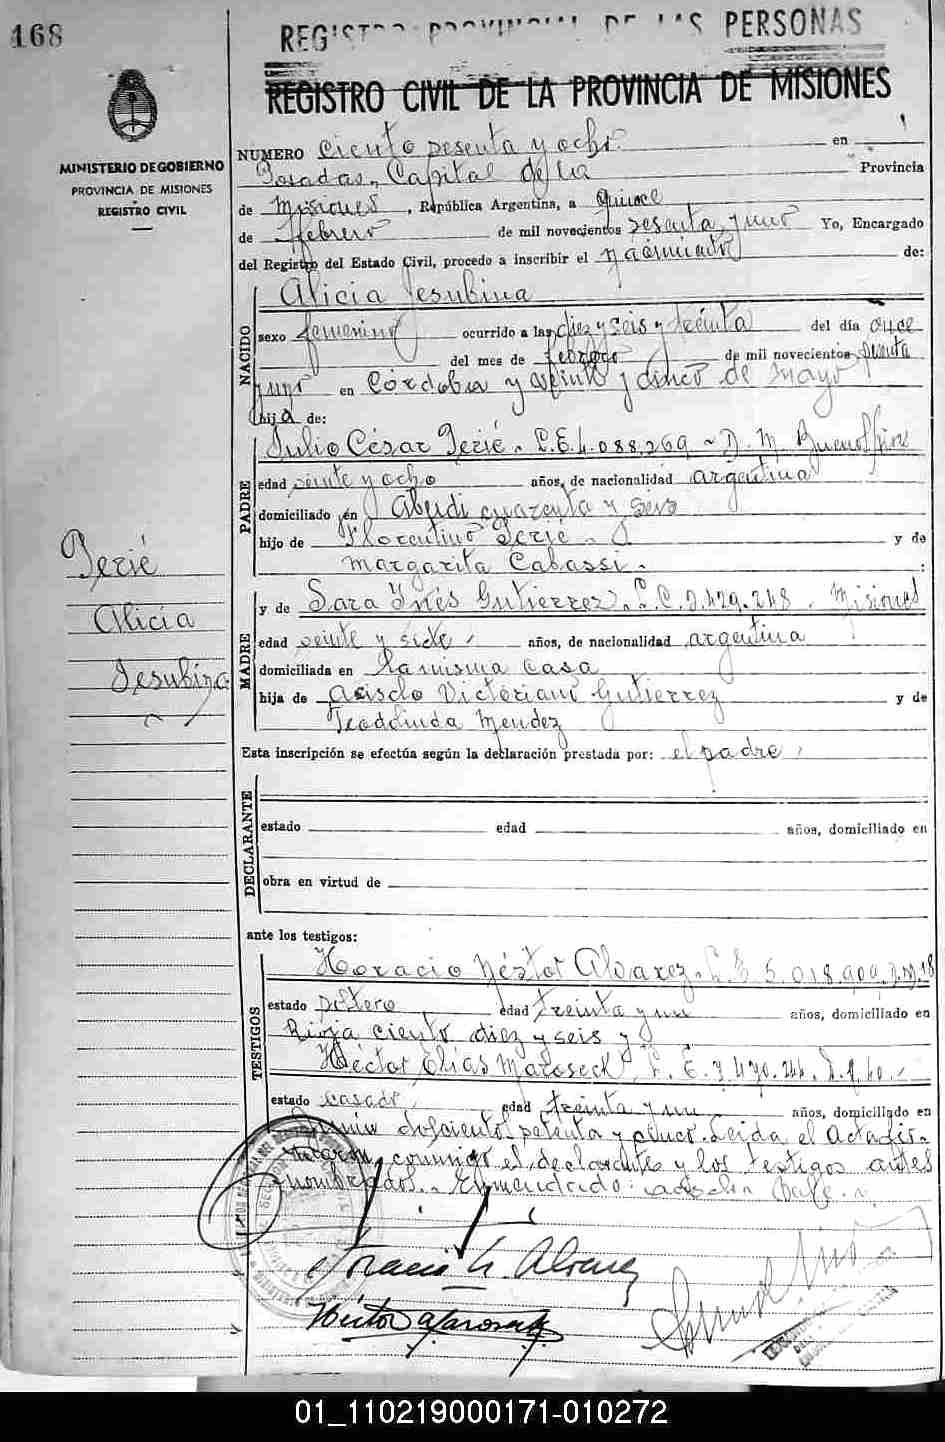 168
REGISTRO PROVINCIAL DE LAS PERSONAS
REGISTRO CIVIL DE LA PROVINCIA DE MISIONES
MINISTERIO DE GOBIERNO
PROVINCIA DE MISIONES
REGISTRO CIVIL
NUMERO Ciento sesenta y ocho en
Posadas, Capital de la Provincia
de Misiones, República Argentina, a quince
de febrero de mil novecientos sesenta y uno Yo, Encargado
del Registro del Estado Civil, procedo a inscribir el nacimiento de:
NACIDO
Alicia Jesubina
sexo femenino ocurrido a las diez y seis y treinta del día once
del mes de febrero de mil novecientos sesenta
y uno en Córdoba y veinte y cinco de Mayo
hija de:
PADRE
Julio César Jerié. L.E. 4.088.269 - D.M. Buenos Aires
edad veinte y ocho años, de nacionalidad argentina
domiciliado en Alberdi cuarenta y seis
hijo de Florentino Jerié y de
Margarita Cabassi.
Jerié
Alicia
Jesubina
MADRE
y de Sara Inés Gutierrez. L.C. 2.429.248. Misiones
edad veinte y siete años, de nacionalidad argentina
domiciliada en la misma casa
hija de Acisclo Victoriano Gutierrez y de
Teodolinda Mendez
Esta inscripción se efectúa según la declaración prestada por: el padre
DECLARANTE
estado edad años, domiciliado en
obra en virtud de
ante los testigos:
TESTIGOS
Horacio Néstor Alvarez. L.E 5.018.909. D.M. 18
estado soltero edad treinta y un años, domiciliado en
Rioja ciento diez y seis y
Héctor Elías Maroseck L.E. 3.470.244.
estado casado edad treinta y un años, domiciliado en
doscientos setenta y cinco. Leida el Acta fir-
conmigo el declarante y los testigos antes
nombrados. Enmendado: Vale.
Horacio N. Alvarez
Héctor Maroseck
01_110219000171-010272